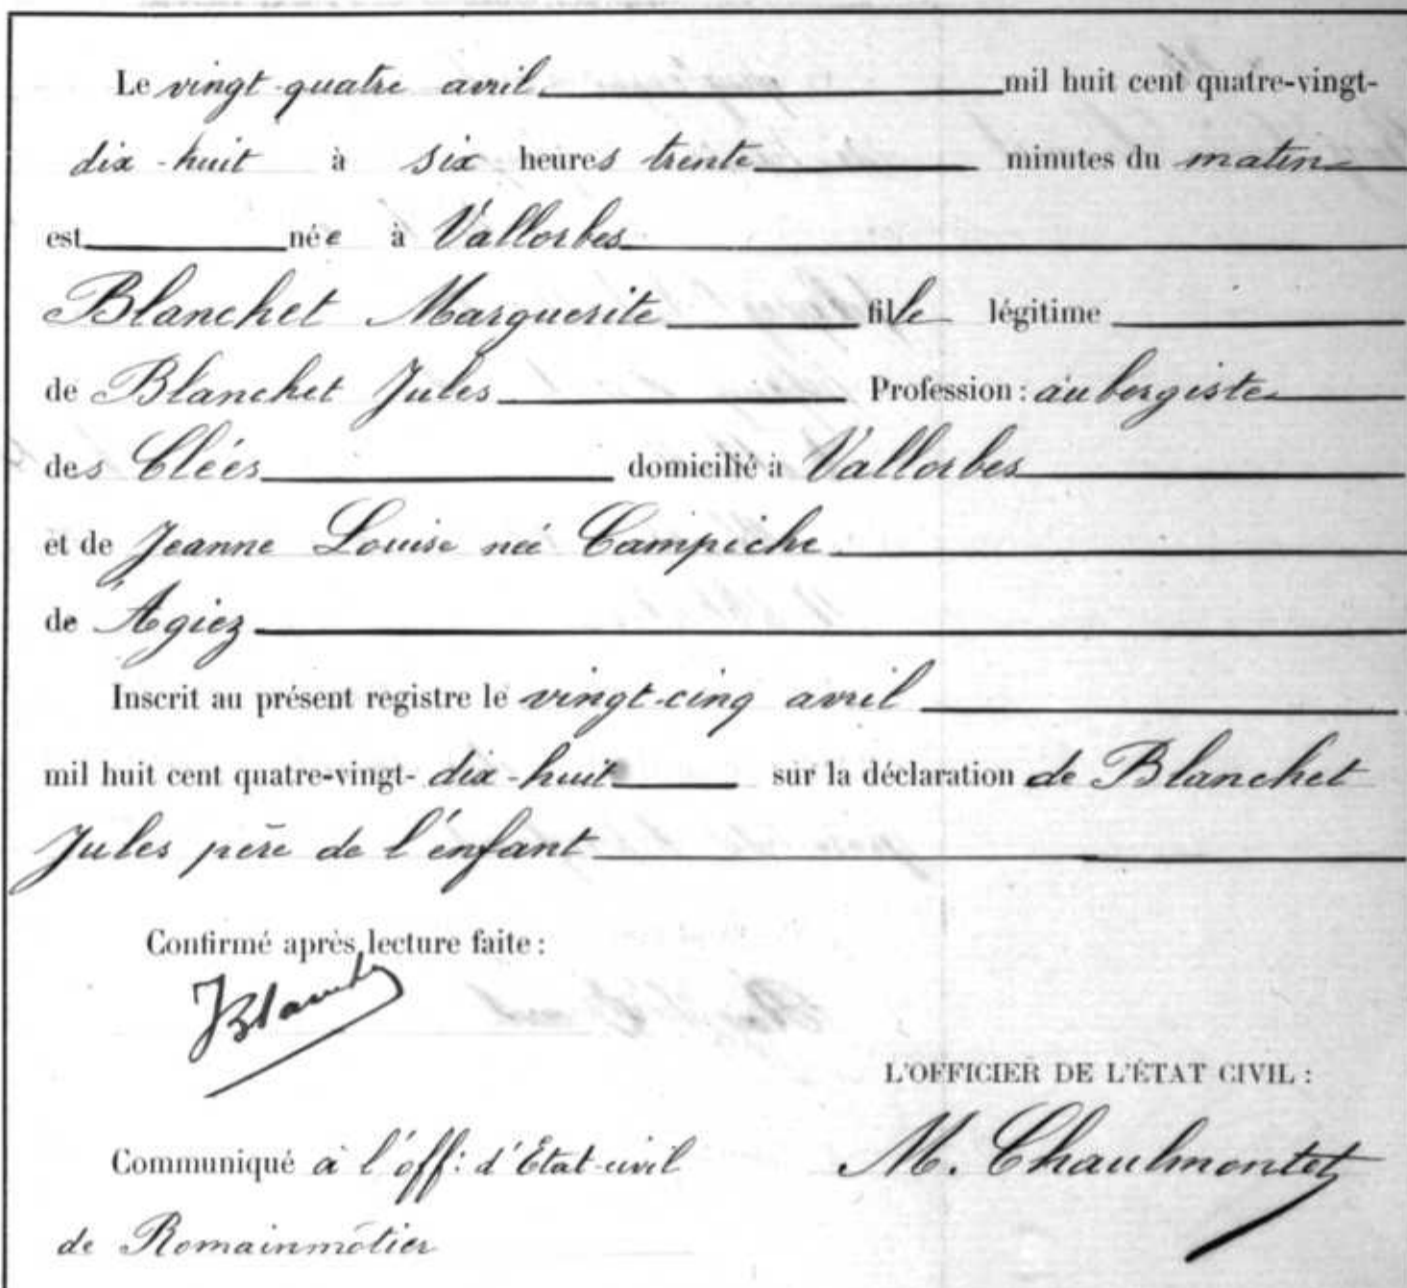 Le vingt-quatre avril mil huit cent quatre-vingt-
dix-huit à six heures trente minutes du matin
est née à Vallorbes
Blanchet Marguerite fille légitime
de Blanchet Jules Profession : aubergiste
des Clées domicilié à Vallorbes
et de Jeanne Louise née Campiche
de Agiez
Inscrit au présent registre le vingt-cinq avril
mil huit cent quatre-vingt- dix-huit sur la déclaration de Blanchet
Jules père de l'enfant
Confirmé après lecture faite :
JBlanchet
L'OFFICIER DE L'ÉTAT CIVIL :
Communiqué à l'off: d'Etat-civil M. Chaulmontet
de Romainmôtier